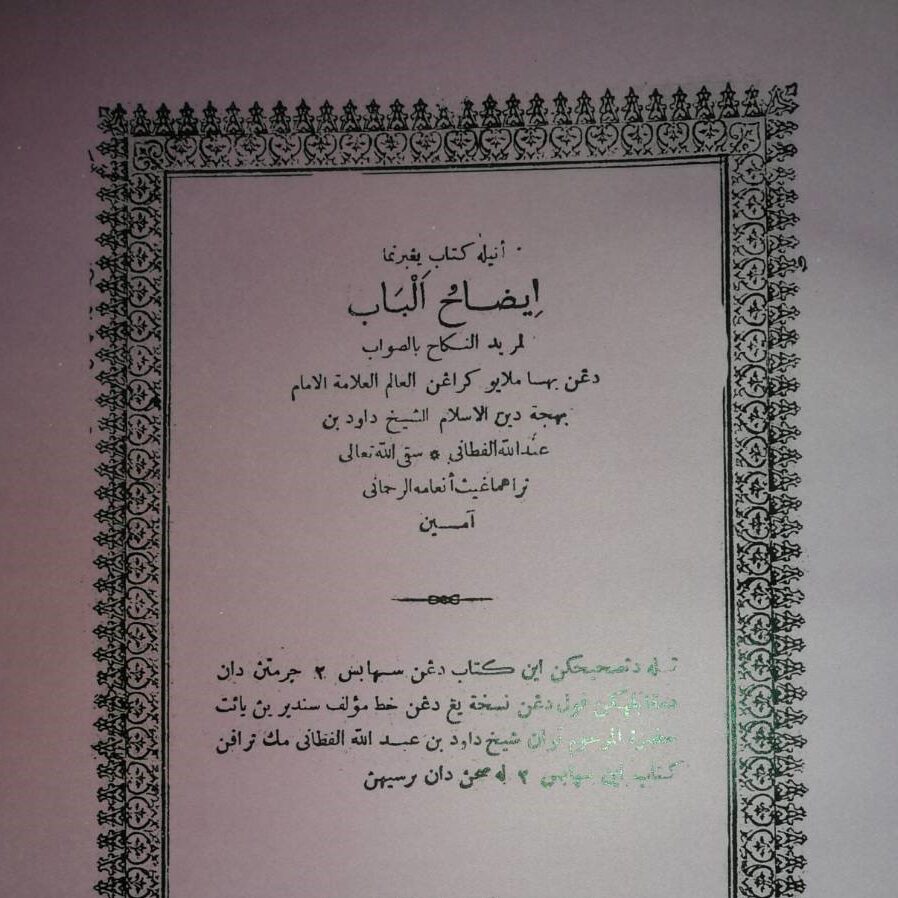 أنيله كتاب يڠبرنما
إِيضاحُ اَلْبَاب
لمريد النكاح بالصواب
دڠن بهسا ملايو كراڠن العالم العلامة الامام
بهجة دين الاسلام الشيخ داود بن
عبد الله الفطانى * سقى الله تعالى
ثراهما غيث أنعامه الرحمانى
آمــين
تله دتصحيحكن اين كتاب دڠن سهابس ٢ جرمتن دان
دمقابلهكن فول دڠن نسخة يڠ دڠن خط مؤلف سنديرين يائت
حضرة المرحوم توان شيخ داود بن عبد الله الفطانى مك ترافن
كتاب اين سهابس ٢ له صحن دان برسيهن